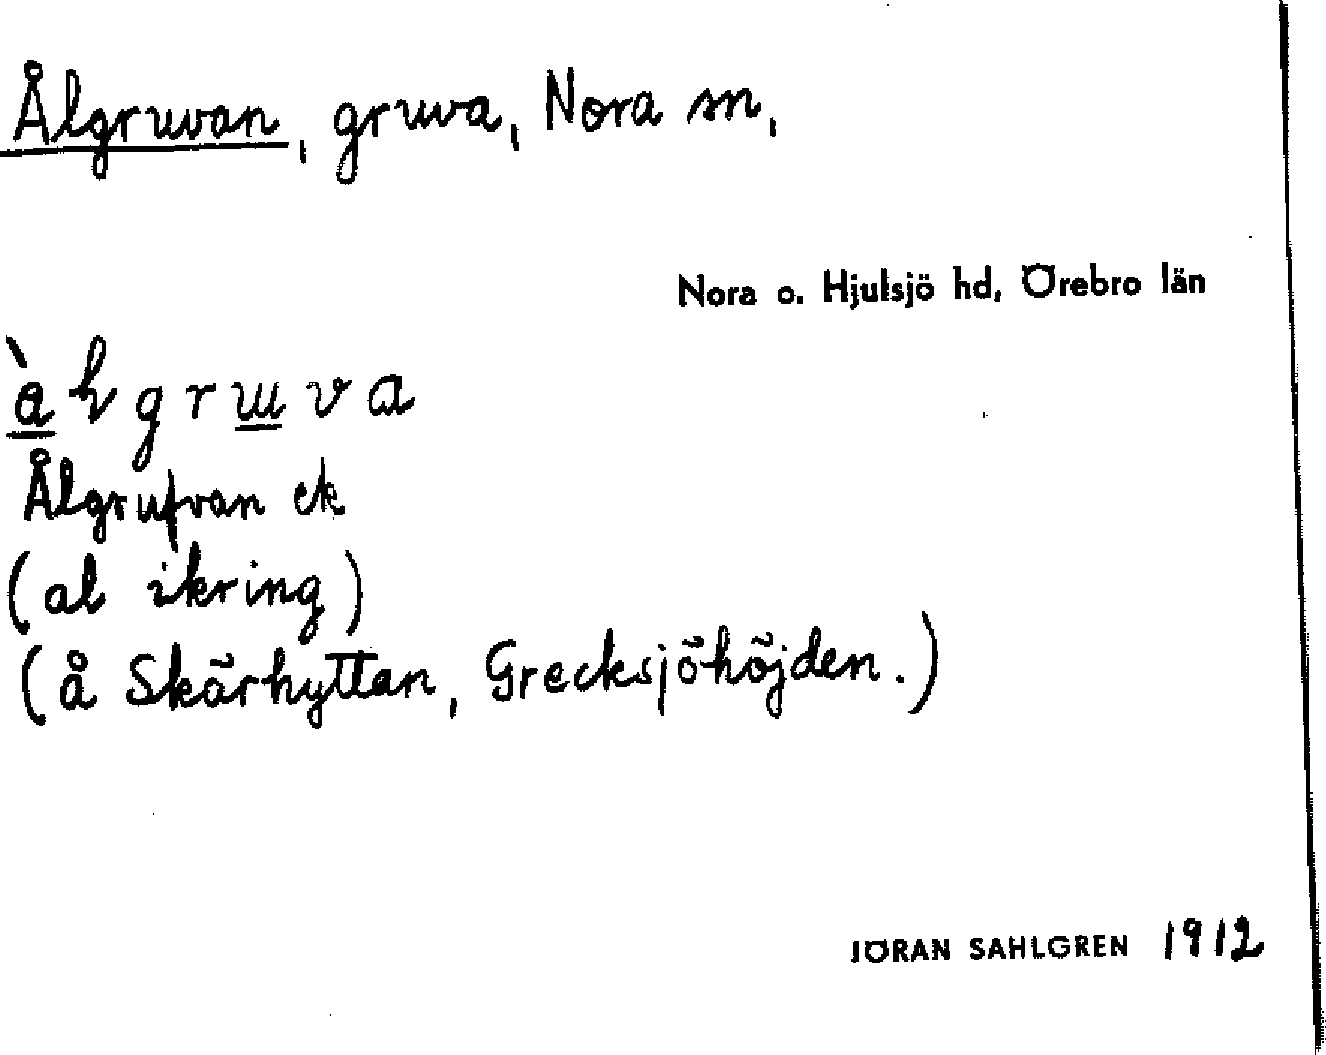 Ålgruvan, gruva, Nora sn,
Nora o. Hjulsjö hd, Örebro län
Ålgrufvan ek
(al ikring)
(å Skärhyttan, Grecksjöhöjden.)
JÖRAN SAHLGREN 1912